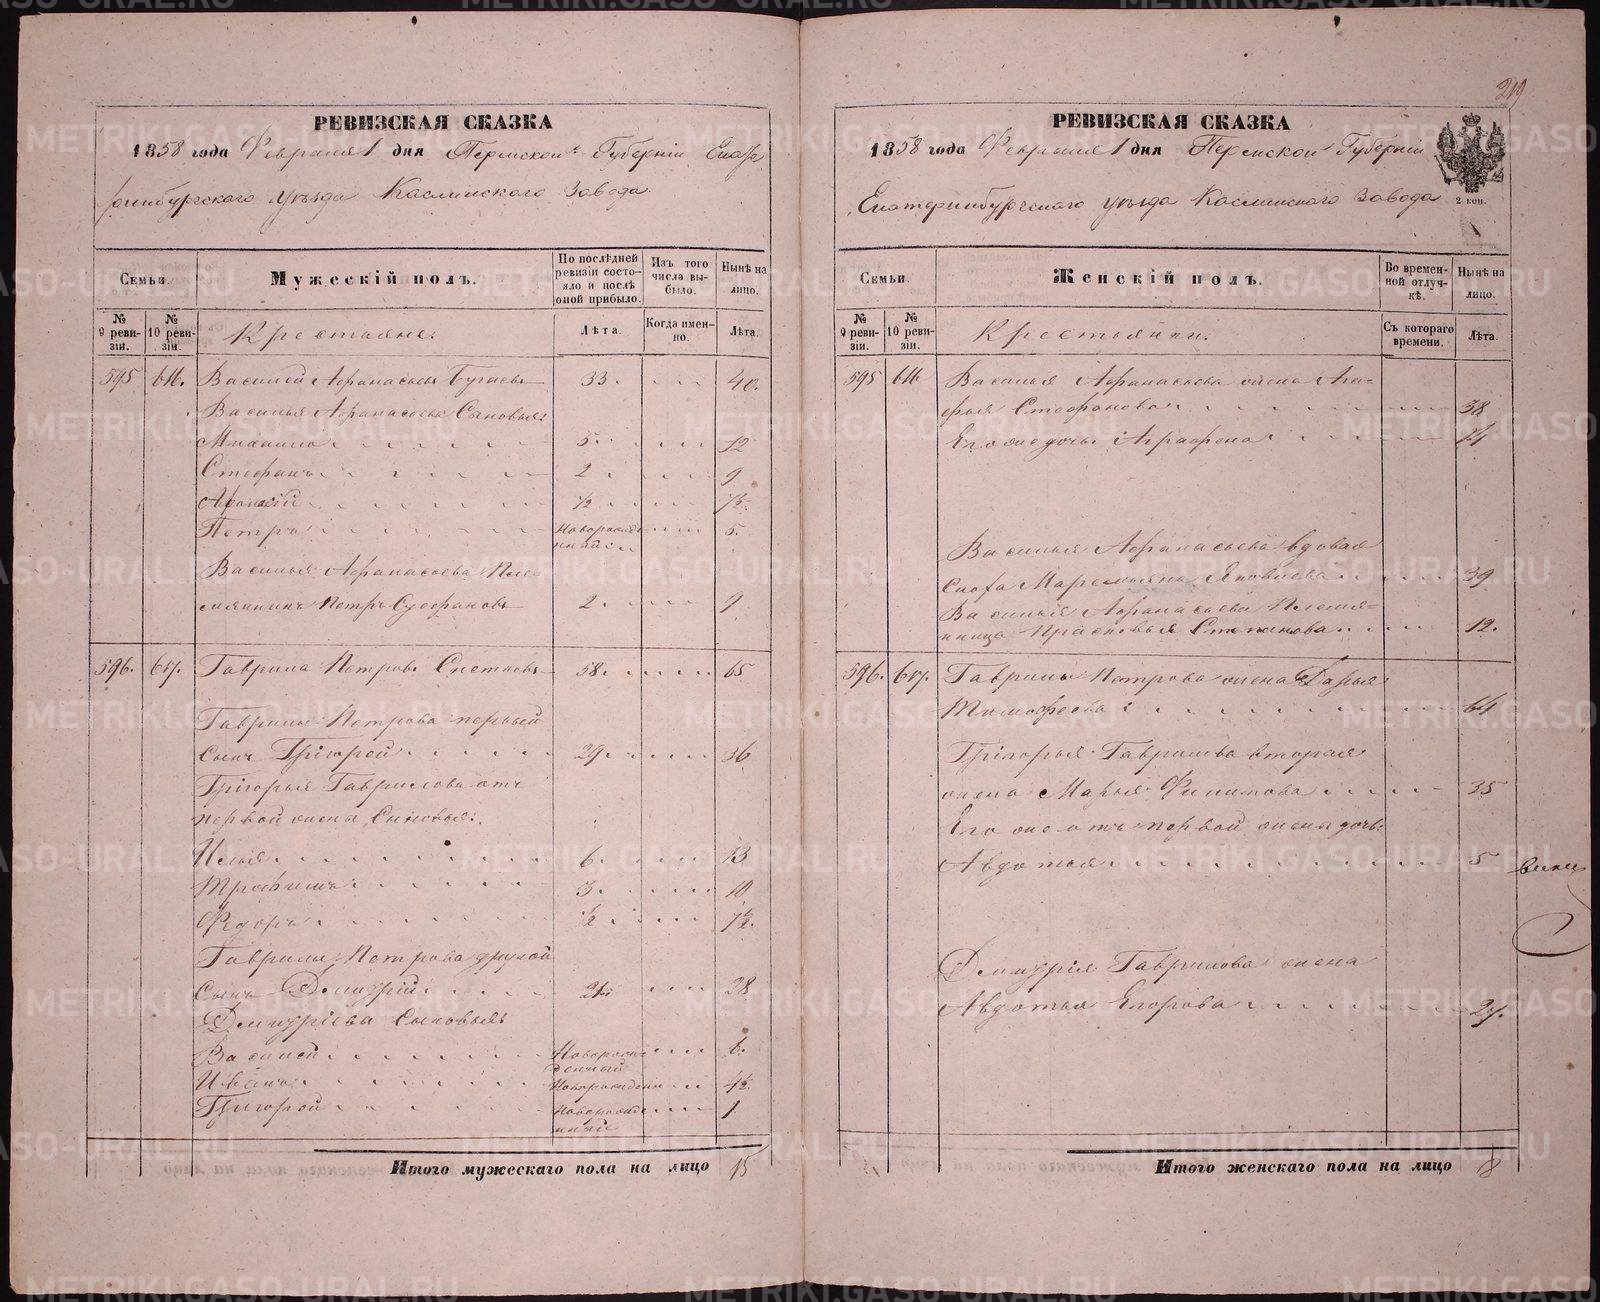 219
РЕВИЗСКАЯ СКАЗКА
1858 года Февраля 1 дня Пермской Губерніи Екате
ринбургского уѣзда Каслинского Завода.
Семьи.
Мужескій полъ.
По послѣдней ревизіи состояло и послѣ оной прибыло.
Изъ того числа выбыло.
Нынѣ на лицо.
№ 9 ревизіи.
№ 10 ревизіи.
Крестьяне:
Лѣта.
Когда именно.
Лѣта.
595 616. Василей Афанасьевъ 33. 40.
Василья Афанасьева Сыновья:
Михайло 5. 12
Стефанъ 2 9
Афонасій ½ 7½
Петръ Новорожденный 5.
Василья Афанасьева Пле-
мянникъ Петръ Стефановъ 2 9
596. 617. Гаврила Петровъ 58. 65
Гаврилы Петрова первый
сынъ Грігорей 29 36
Грігорья Гаврилова отъ
первой жены Сыновья:
Илья 6 13
Трофимъ 3 10
Федоръ ½ 7½
Гаврилы Петрова другой
Сынъ Дмитрій 21 28
Дмитріева Сыновья
Василей Новорожденный 6.
Иванъ Новорожденн 4½
Григорей Новорожденный 1
Итого мужескаго пола на лицо 15
РЕВИЗСКАЯ СКАЗКА
1858 года Февраля 1 дня Пермской Губерніи
Екатеринбургского уѣзда Каслинского Завода
2 коп.
Семьи.
Женскій полъ.
Во временной отлучкѣ.
Нынѣ на лицо.
№ 9 ревизіи.
№ 10 ревизіи.
Крестьянки.
Съ котораго времени.
Лѣта.
595 616 Василья Афанасьева жена Ага-
фья Стефанова 38
Его же дочь Аграфена 14
Василья Афанасьева вдовая
сноха Маремьяна Яковлева 39
Василья Афанасьева Племя-
нница Прасковья Степанова 12.
596. 617. Гаврилы Петрова жена Дарья
Тимофеева 64
Грігорья Гаврилова вторая
жена Марья Филипова 35
Его же отъ первой жены дочь
Авдотья 5
Дмитрія Гаврилова жена
Авдотья Егорова 27.
Итого женскаго пола на лицо 8
METRIKI.GASO-URAL.RU